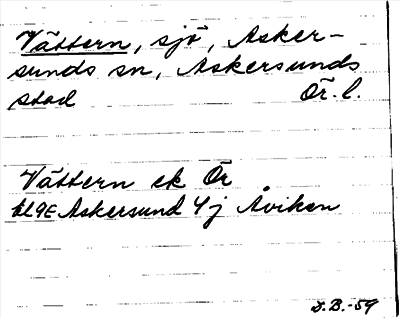 Vättern, sjö, Asker-
sunds sn, Askersunds
stad Ör. l.
Vättern ek Ör
bl 9E Askersund 4j Åviken
D.B.-59